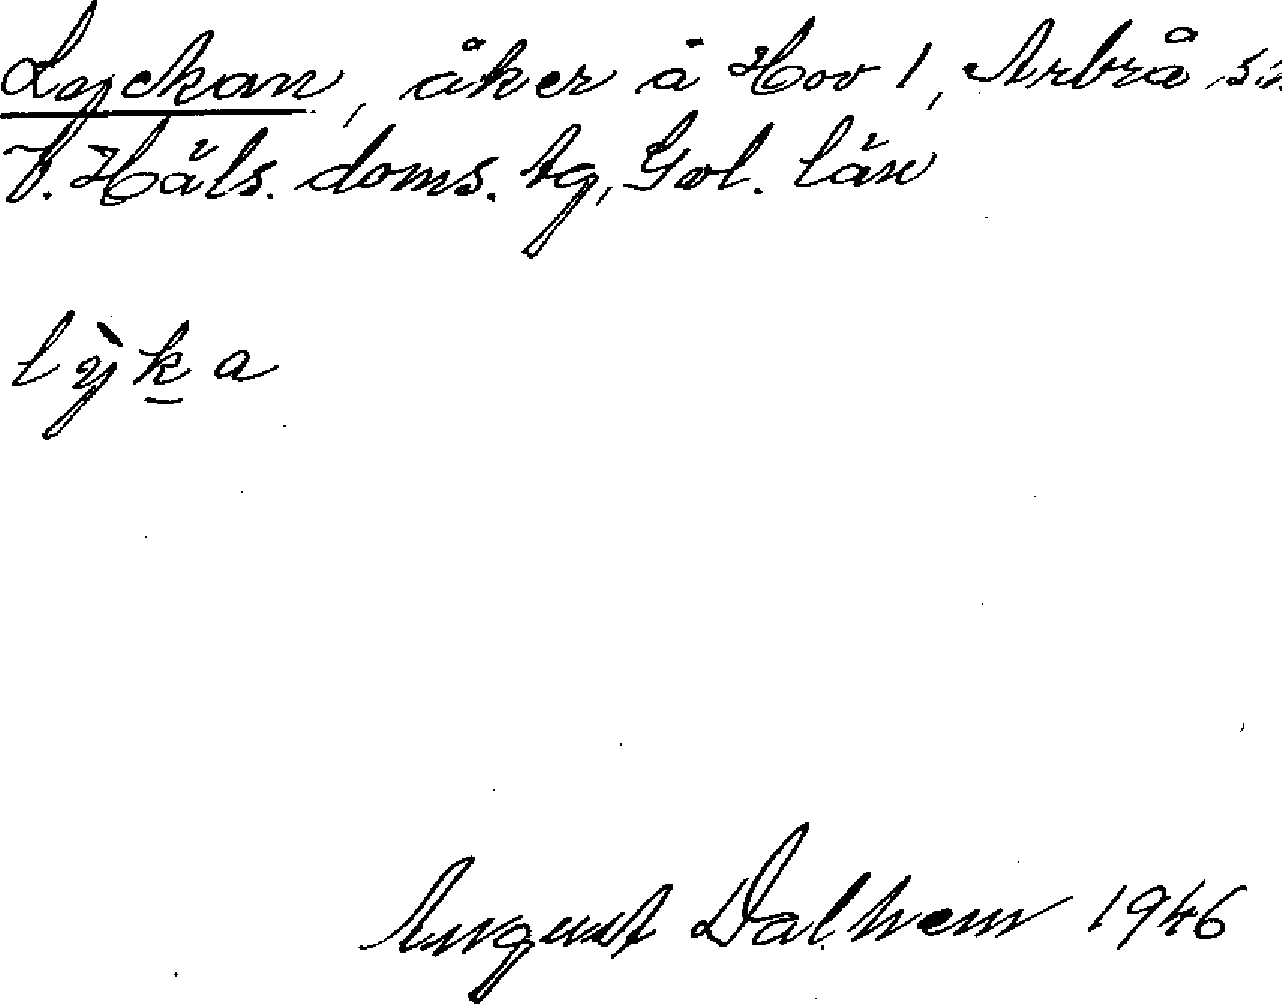 Lyckan, åker å Hov 1, Arbrå sn
V. Häls. doms. tg, Gvl. län
lỳk̲a
August Dalhem 1946